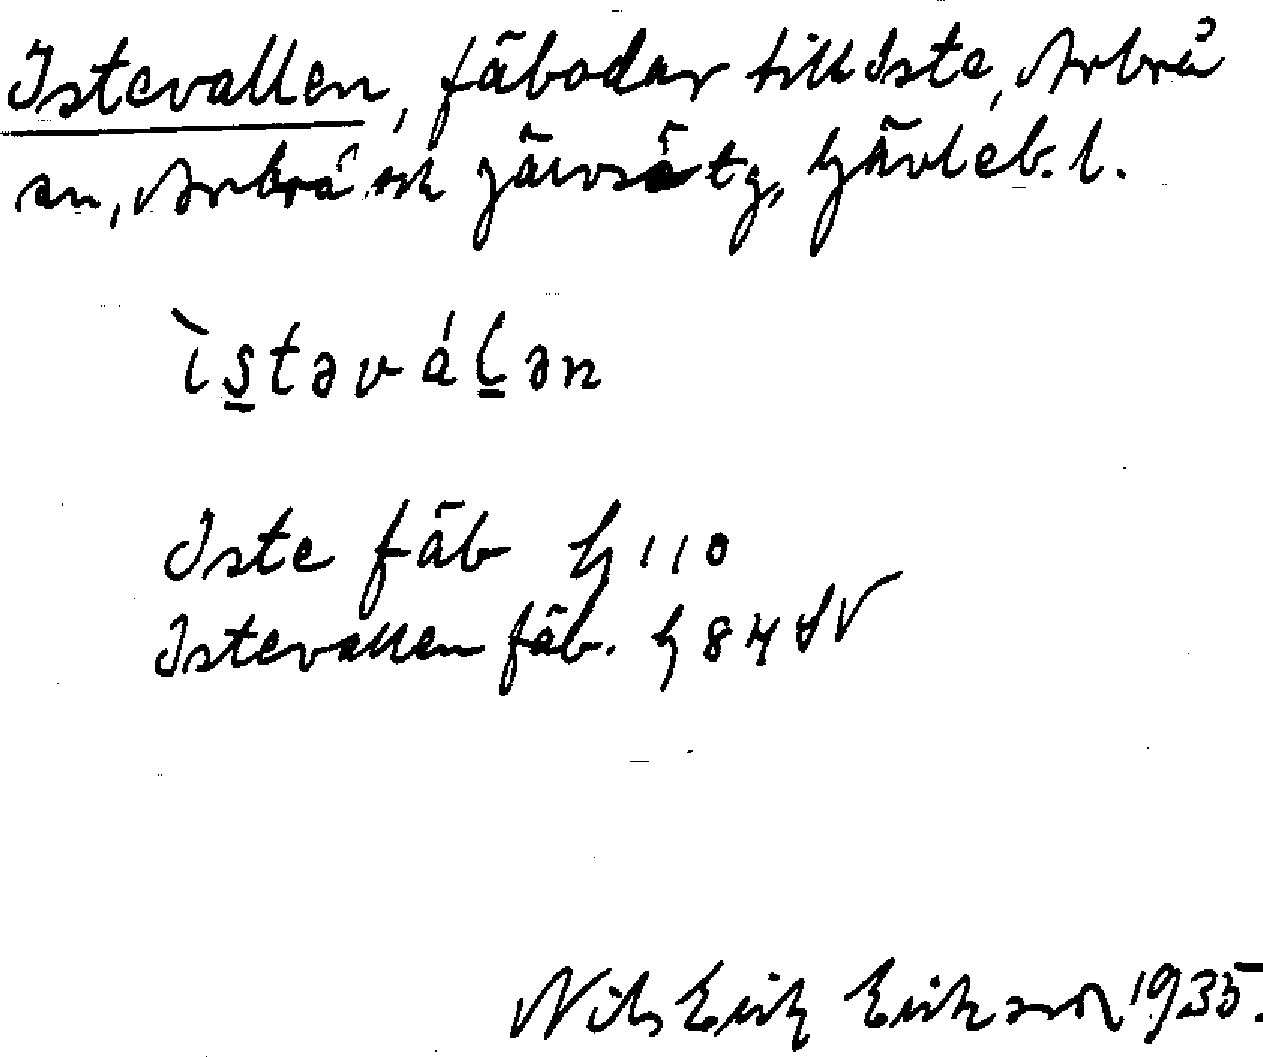 Istevallen, fäbodar till Iste, Arbrå
sn, Arbrå och Järvsö tg, Gävleb. l.
ìs̠təvál̠ən
Iste fäb G 110
Istevallen fäb. G 84 SV
Nils Erik Eriksson 1935.